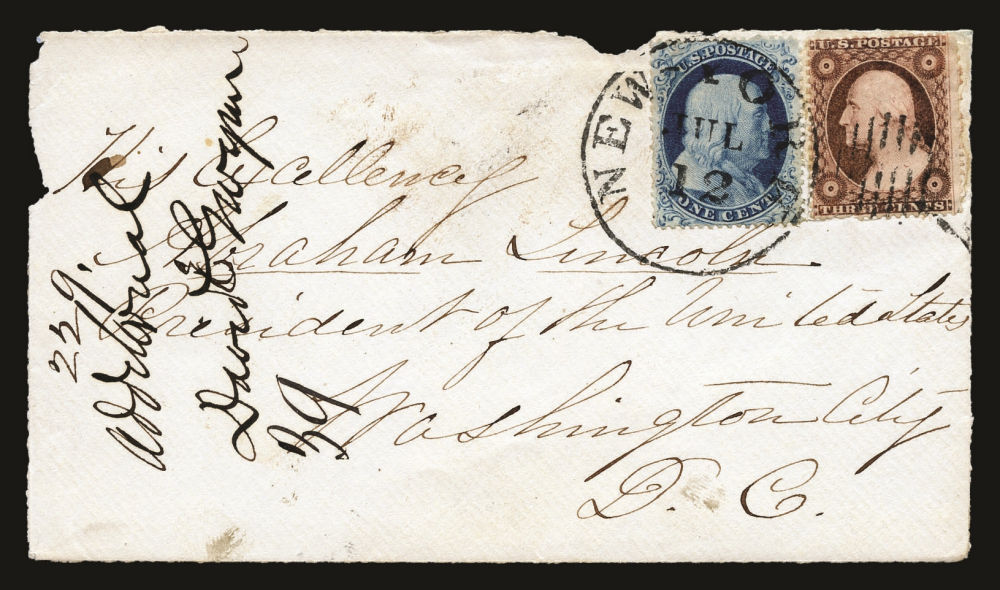 U.S. POSTAGE
ONE CENT
U.S. POSTAGE
THREE CENTS
NEW YORK
JUL
12
His Excellency
Abraham Lincoln.
President of the United States
Washington City
D. C.
229
David
39